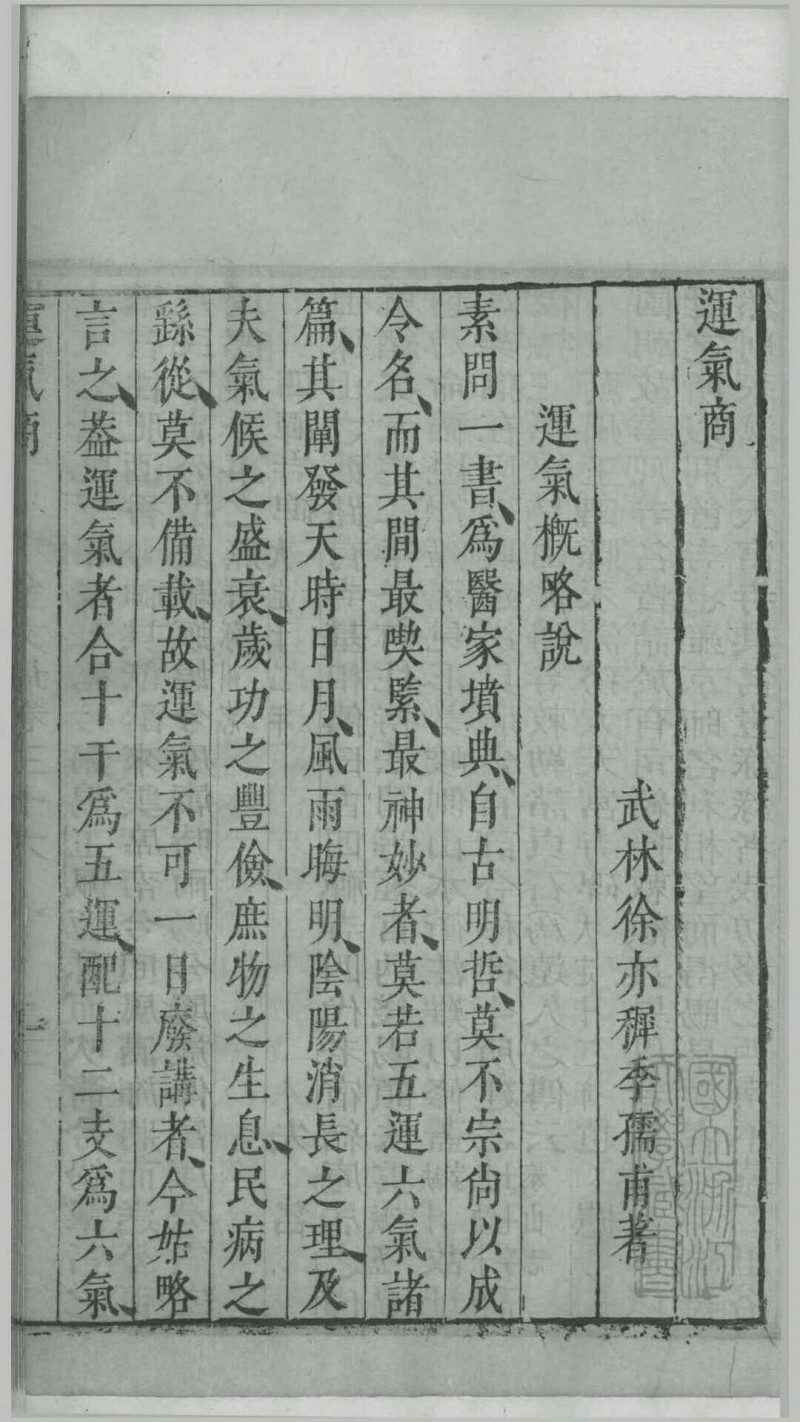 運氣商
武林徐亦穉季孺甫著
運氣概略說
素問一書、爲醫家墳典、自古明哲、莫不宗尙以成
令名、而其間最喫緊、最神妙者、莫若五運六氣諸
篇、其闡發天時日月、風雨晦明、陰陽消長之理、及
夫氣候之盛衰、歲功之豐儉、庶物之生息、民病之
繇從、莫不備載、故運氣不可一日廢講者、今姑略
言之、葢運氣者合十干爲五運、配十二支爲六氣、
運氣商
一